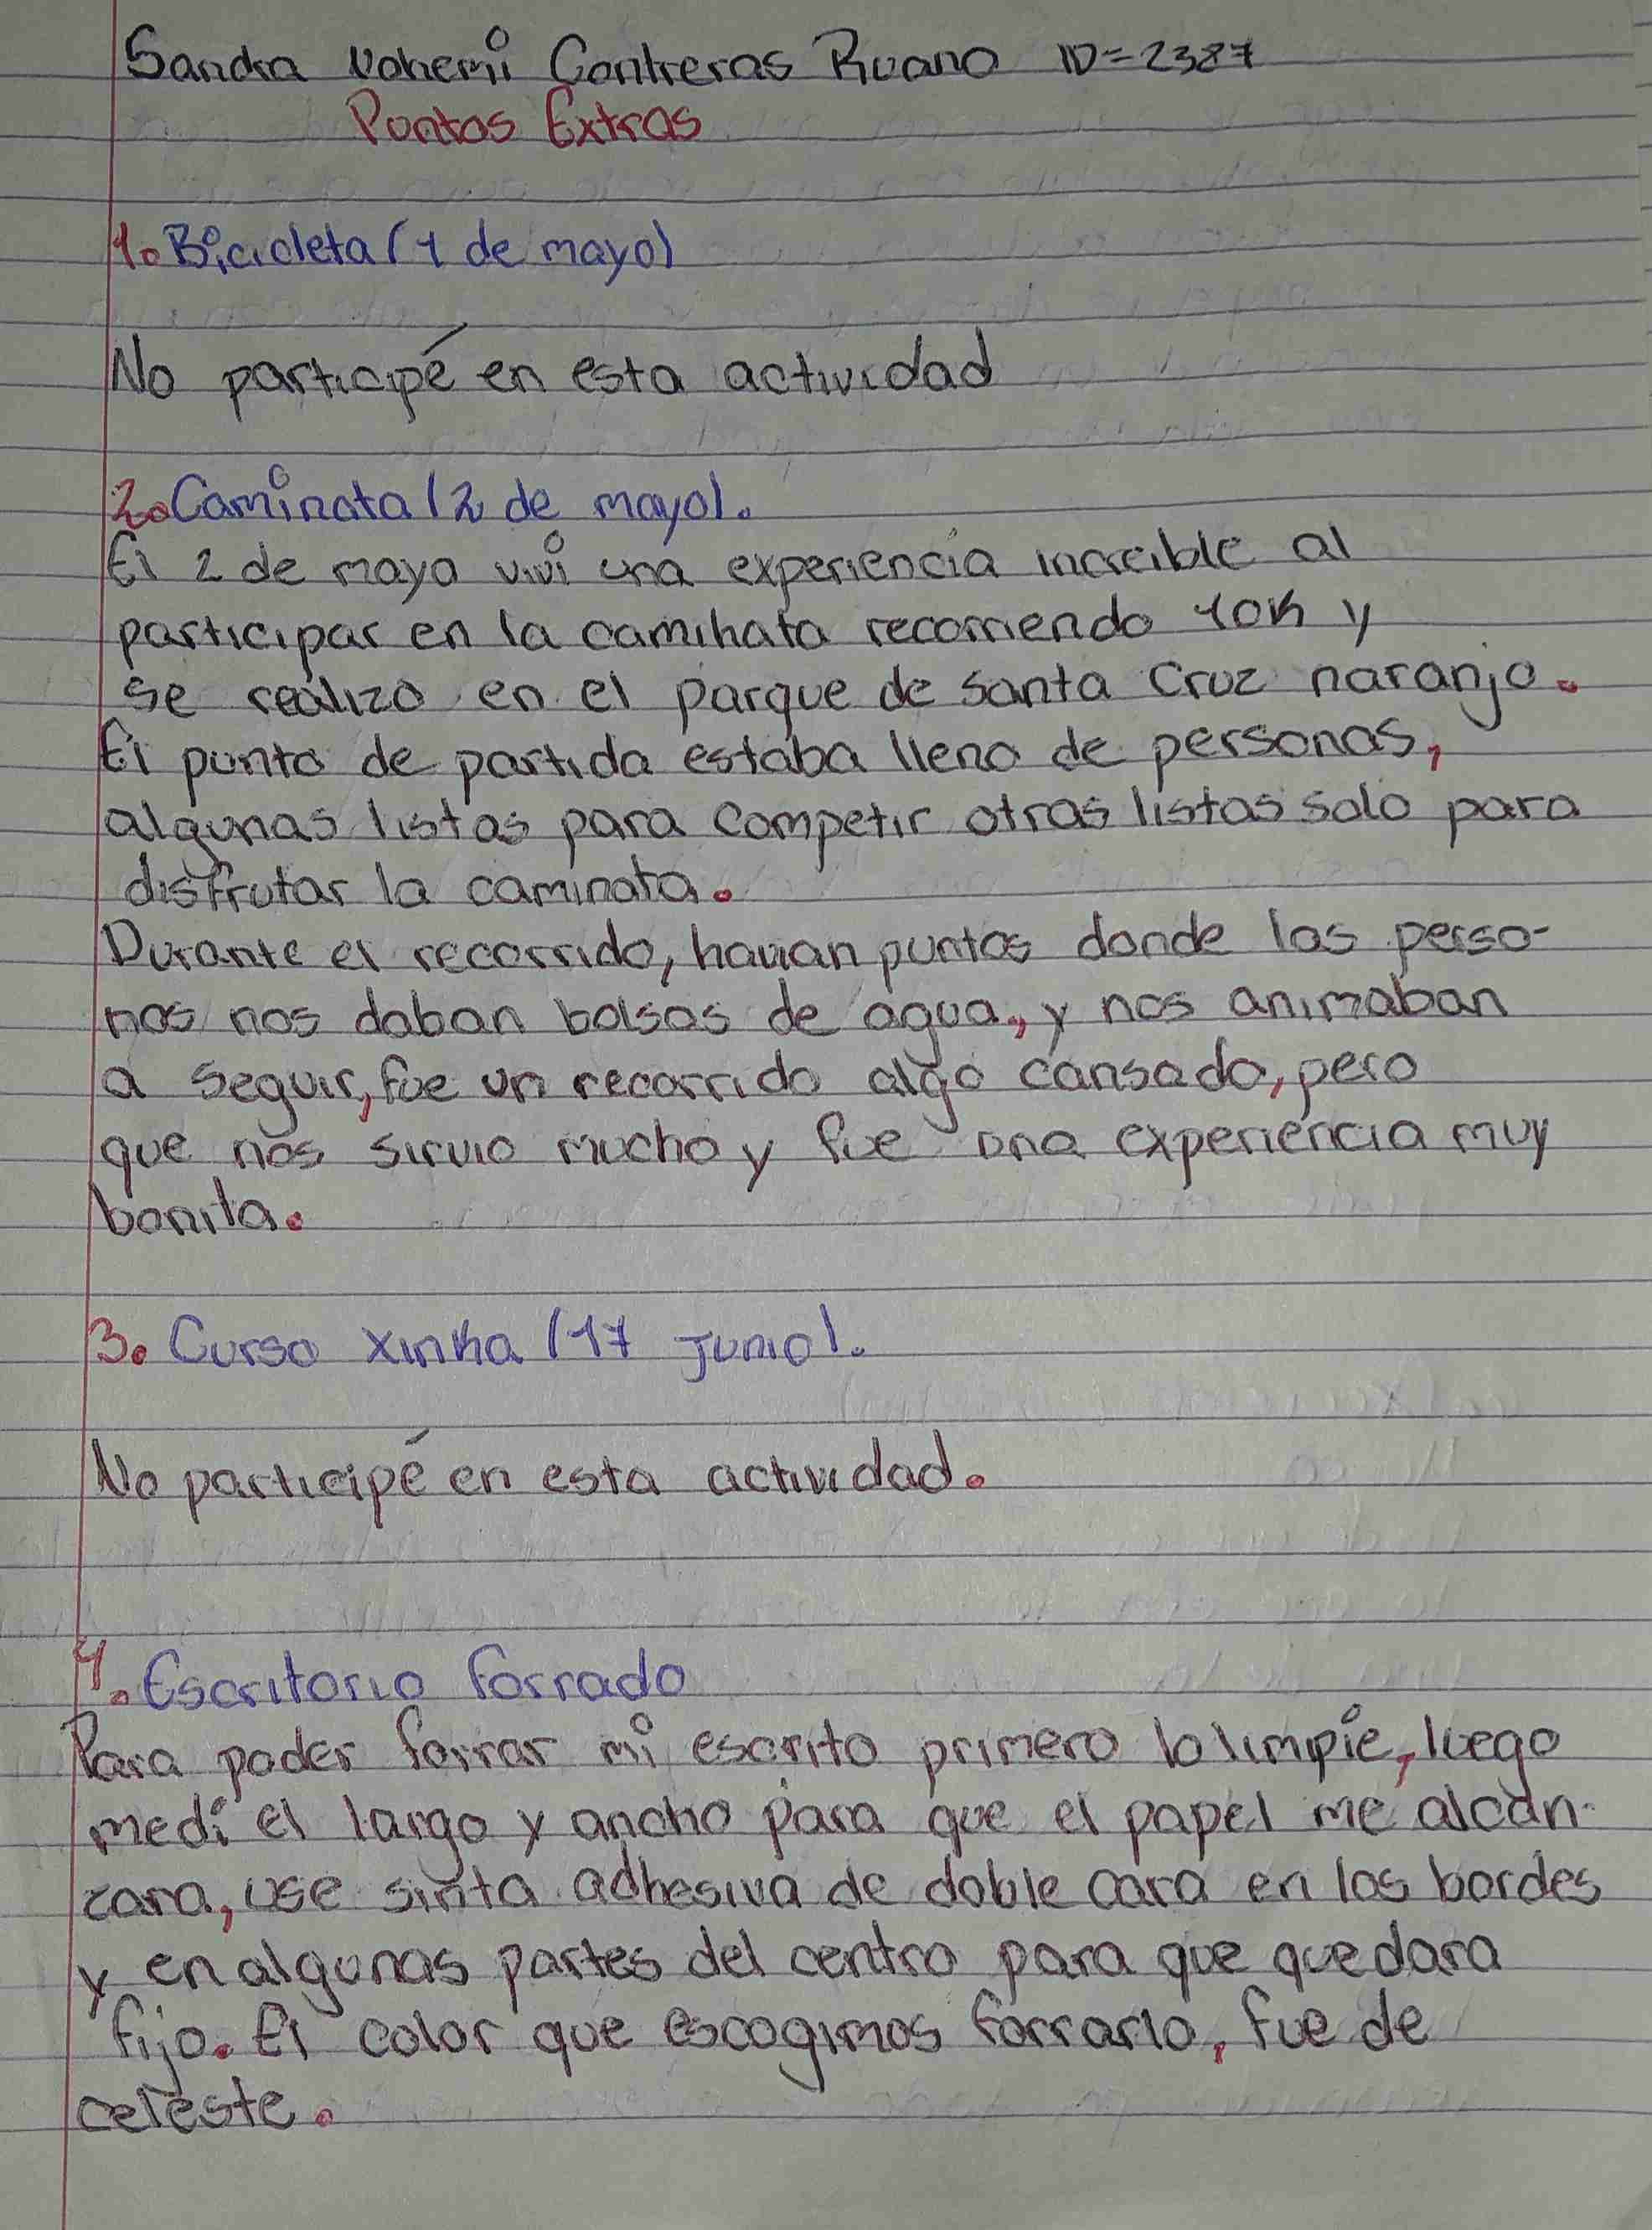 Sandra Nohemi Contreras Ruano ID=2387
Puntos Extras
1. Bicicleta (1 de mayo)
No participé en esta actividad
2. Caminata (2 de mayo).
El 2 de mayo vivi una experiencia increible al
participar en la caminata recomendo 10K y
se realizo en el parque de Santa Cruz naranjo.
El punto de partida estaba lleno de personas,
algunas listas para competir otras listas solo para
disfrutar la caminata.
Durante el recorrido, havian puntos donde las perso-
nas nos daban bolsas de agua, y nos animaban
a seguir, fue un recorrido algo cansado, pero
que nos sirvio mucho y fue una experiencia muy
bonita.
3. Curso xinka (17 Junio).
No participé en esta actividad.
4. Escritorio forrado
Para poder forrar mi escrito primero lo limpie, luego
medi el largo y ancho para que el papel me alcan-
zara, use sinta adhesiva de doble cara en los bordes
y en algunas partes del centro para que quedara
fijo. El color que escogimos forrarlo, fue de
celeste.